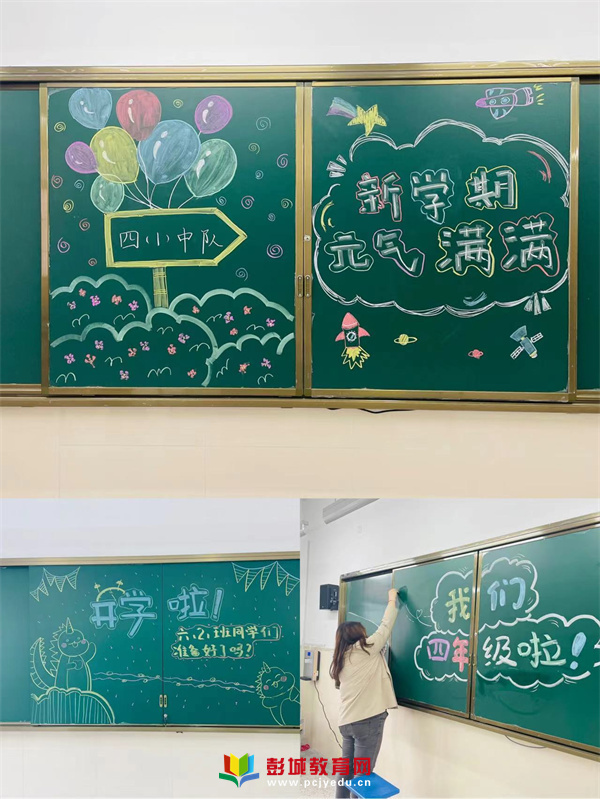 四(1)中队
新学期
元气满满
开学啦!
六.2)班同学们
准备好了吗?
我们
四年级啦!
彭城教育网
www.pcjyedu.cn